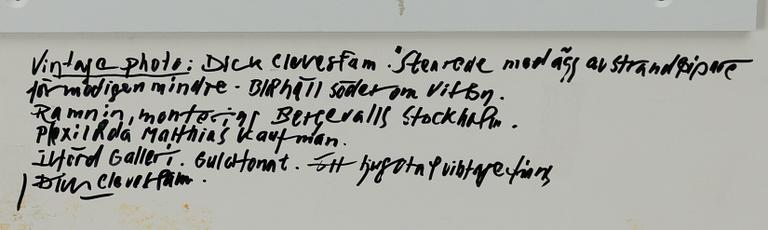 Vintage photo: Dick Clevestam. "Stenrede med ägg av strandpipare
förmodligen mindre. Blåhäll söder om Visby.
Ramnin, montering Bergevalls Stockholm.
Plexilåda Matthias Kaufman.
Ilford Galleri. Guldtonat. Ett tjugotal vintage finns
Dick Clevestam.